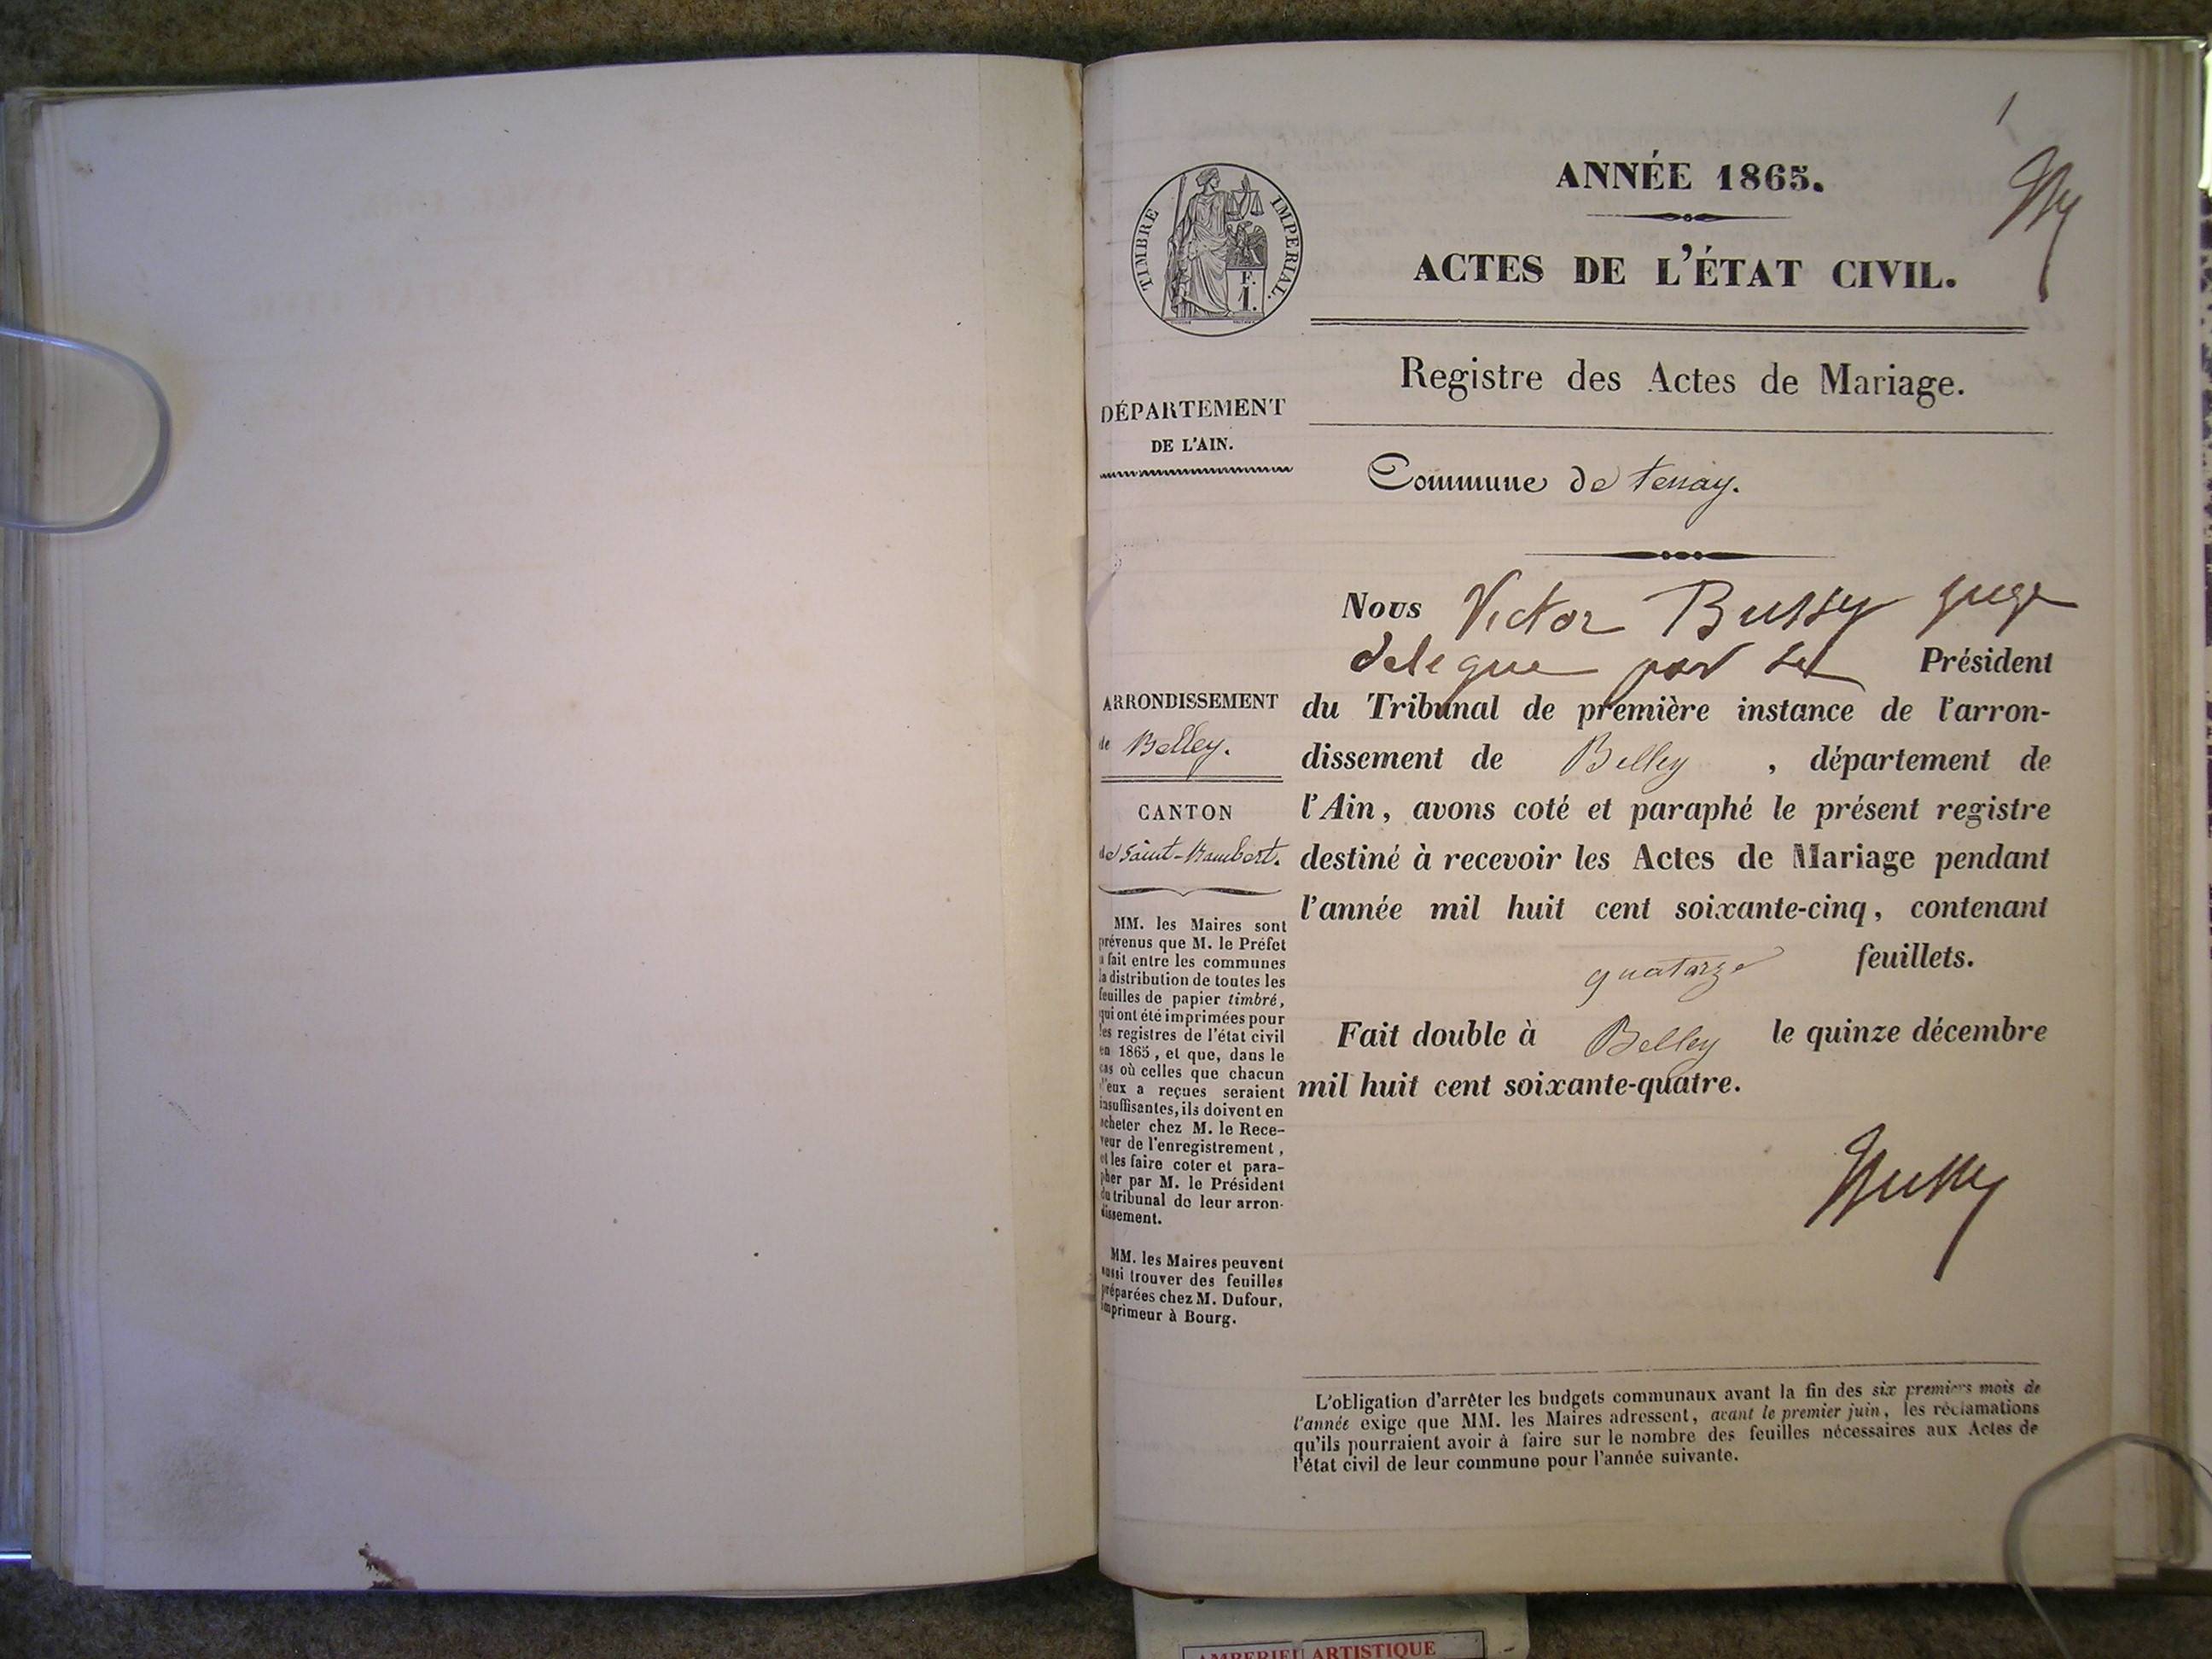 1
ANNÉE 1865.
TIMBRE IMPERIAL.
F.
1.
ACTES DE L'ÉTAT CIVIL.
Registre des Actes de Mariage.
DÉPARTEMENT
DE L'AIN.
Commune de tenay.
Nous Victor Bussy juge
delegue par le Président
du Tribunal de première instance de l'arron-
dissement de Belley , département de
l'Ain, avons coté et paraphé le présent registre
destiné à recevoir les Actes de Mariage pendant
l'année mil huit cent soixante-cinq, contenant
quatorze feuillets.
Fait double à Belley le quinze décembre
mil huit cent soixante-quatre.
Bussy
ARRONDISSEMENT
de Belley.
CANTON
de Saint-Rambert.
MM. les Maires sont
prévenus que M. le Préfet
a fait entre les communes
la distribution de toutes les
feuilles de papier timbré,
qui ont été imprimées pour
les registres de l'état civil
en 1865, et que, dans le
cas où celles que chacun
d'eux a reçues seraient
insuffisantes, ils doivent en
acheter chez M. le Rece-
veur de l'enregistrement,
et les faire coter et para-
pher par M. le Président
du tribunal de leur arron-
dissement.
MM. les Maires peuvent
aussi trouver des feuilles
préparées chez M. Dufour,
imprimeur à Bourg.
L'obligation d'arrêter les budgets communaux avant la fin des six premiers mois de
l'année exige que MM. les Maires adressent, avant le premier juin, les réclamations
qu'ils pourraient avoir à faire sur le nombre des feuilles nécessaires aux Actes de
l'état civil de leur commune pour l'année suivante.
AMBERIEU ARTISTIQUE